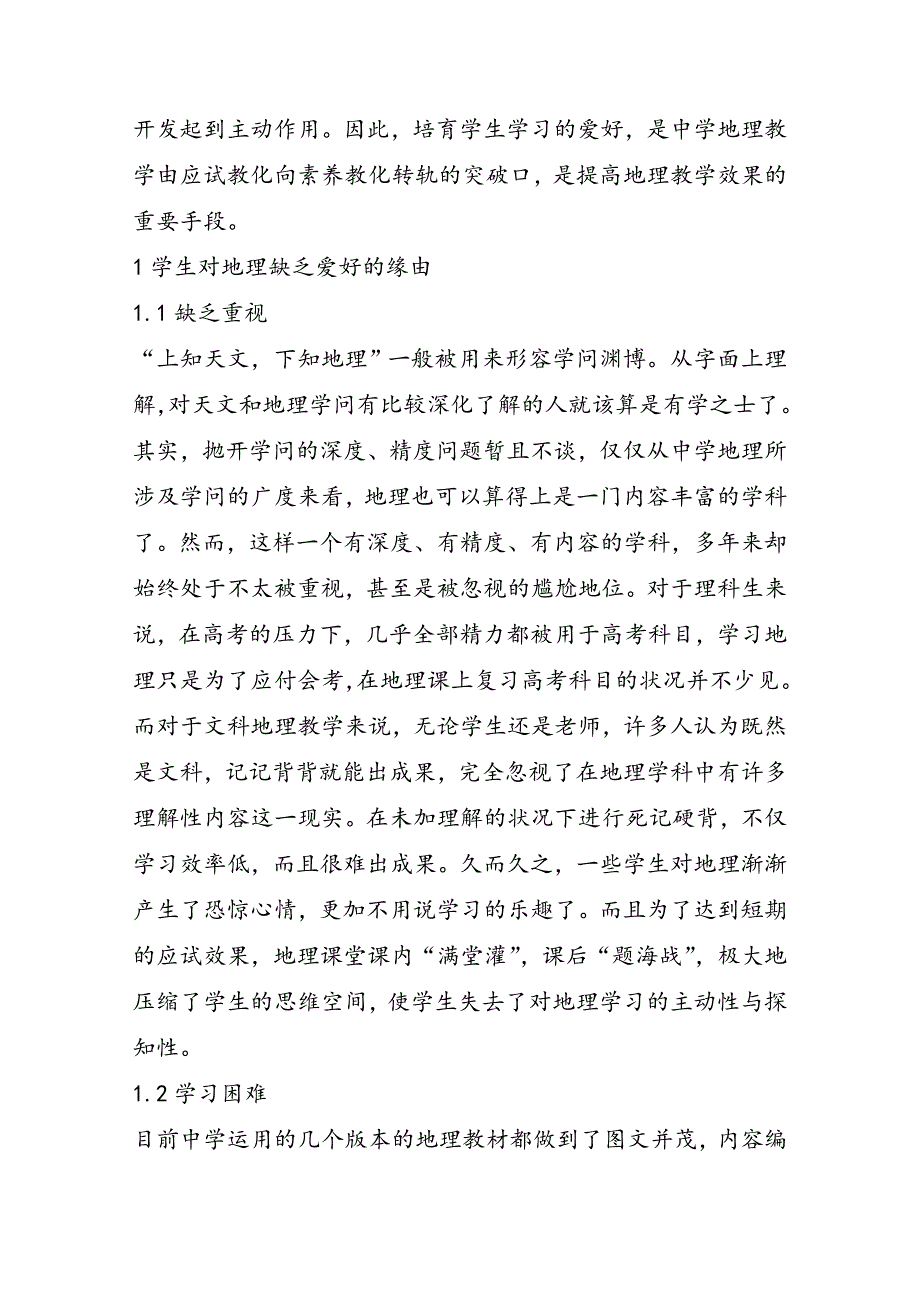 开发起到主动作用。因此，培育学生学习的爱好，是中学地理教
学由应试教化向素养教化转轨的突破口，是提高地理教学效果的
重要手段。
1学生对地理缺乏爱好的缘由
1.1缺乏重视
“上知天文，下知地理”一般被用来形容学问渊博。从字面上理
解,对天文和地理学问有比较深化了解的人就该算是有学之士了。
其实，抛开学问的深度、精度问题暂且不谈，仅仅从中学地理所
涉及学问的广度来看，地理也可以算得上是一门内容丰富的学科
了。然而，这样一个有深度、有精度、有内容的学科，多年来却
始终处于不太被重视，甚至是被忽视的尴尬地位。对于理科生来
说，在高考的压力下，几乎全部精力都被用于高考科目，学习地
理只是为了应付会考,在地理课上复习高考科目的状况并不少见。
而对于文科地理教学来说，无论学生还是老师，许多人认为既然
是文科，记记背背就能出成果，完全忽视了在地理学科中有许多
理解性内容这一现实。在未加理解的状况下进行死记硬背，不仅
学习效率低，而且很难出成果。久而久之，一些学生对地理渐渐
产生了恐惊心情，更加不用说学习的乐趣了。而且为了达到短期
的应试效果，地理课堂课内“满堂灌”，课后“题海战”，极大地
压缩了学生的思维空间，使学生失去了对地理学习的主动性与探
知性。
1.2学习困难
目前中学运用的几个版本的地理教材都做到了图文并茂，内容编